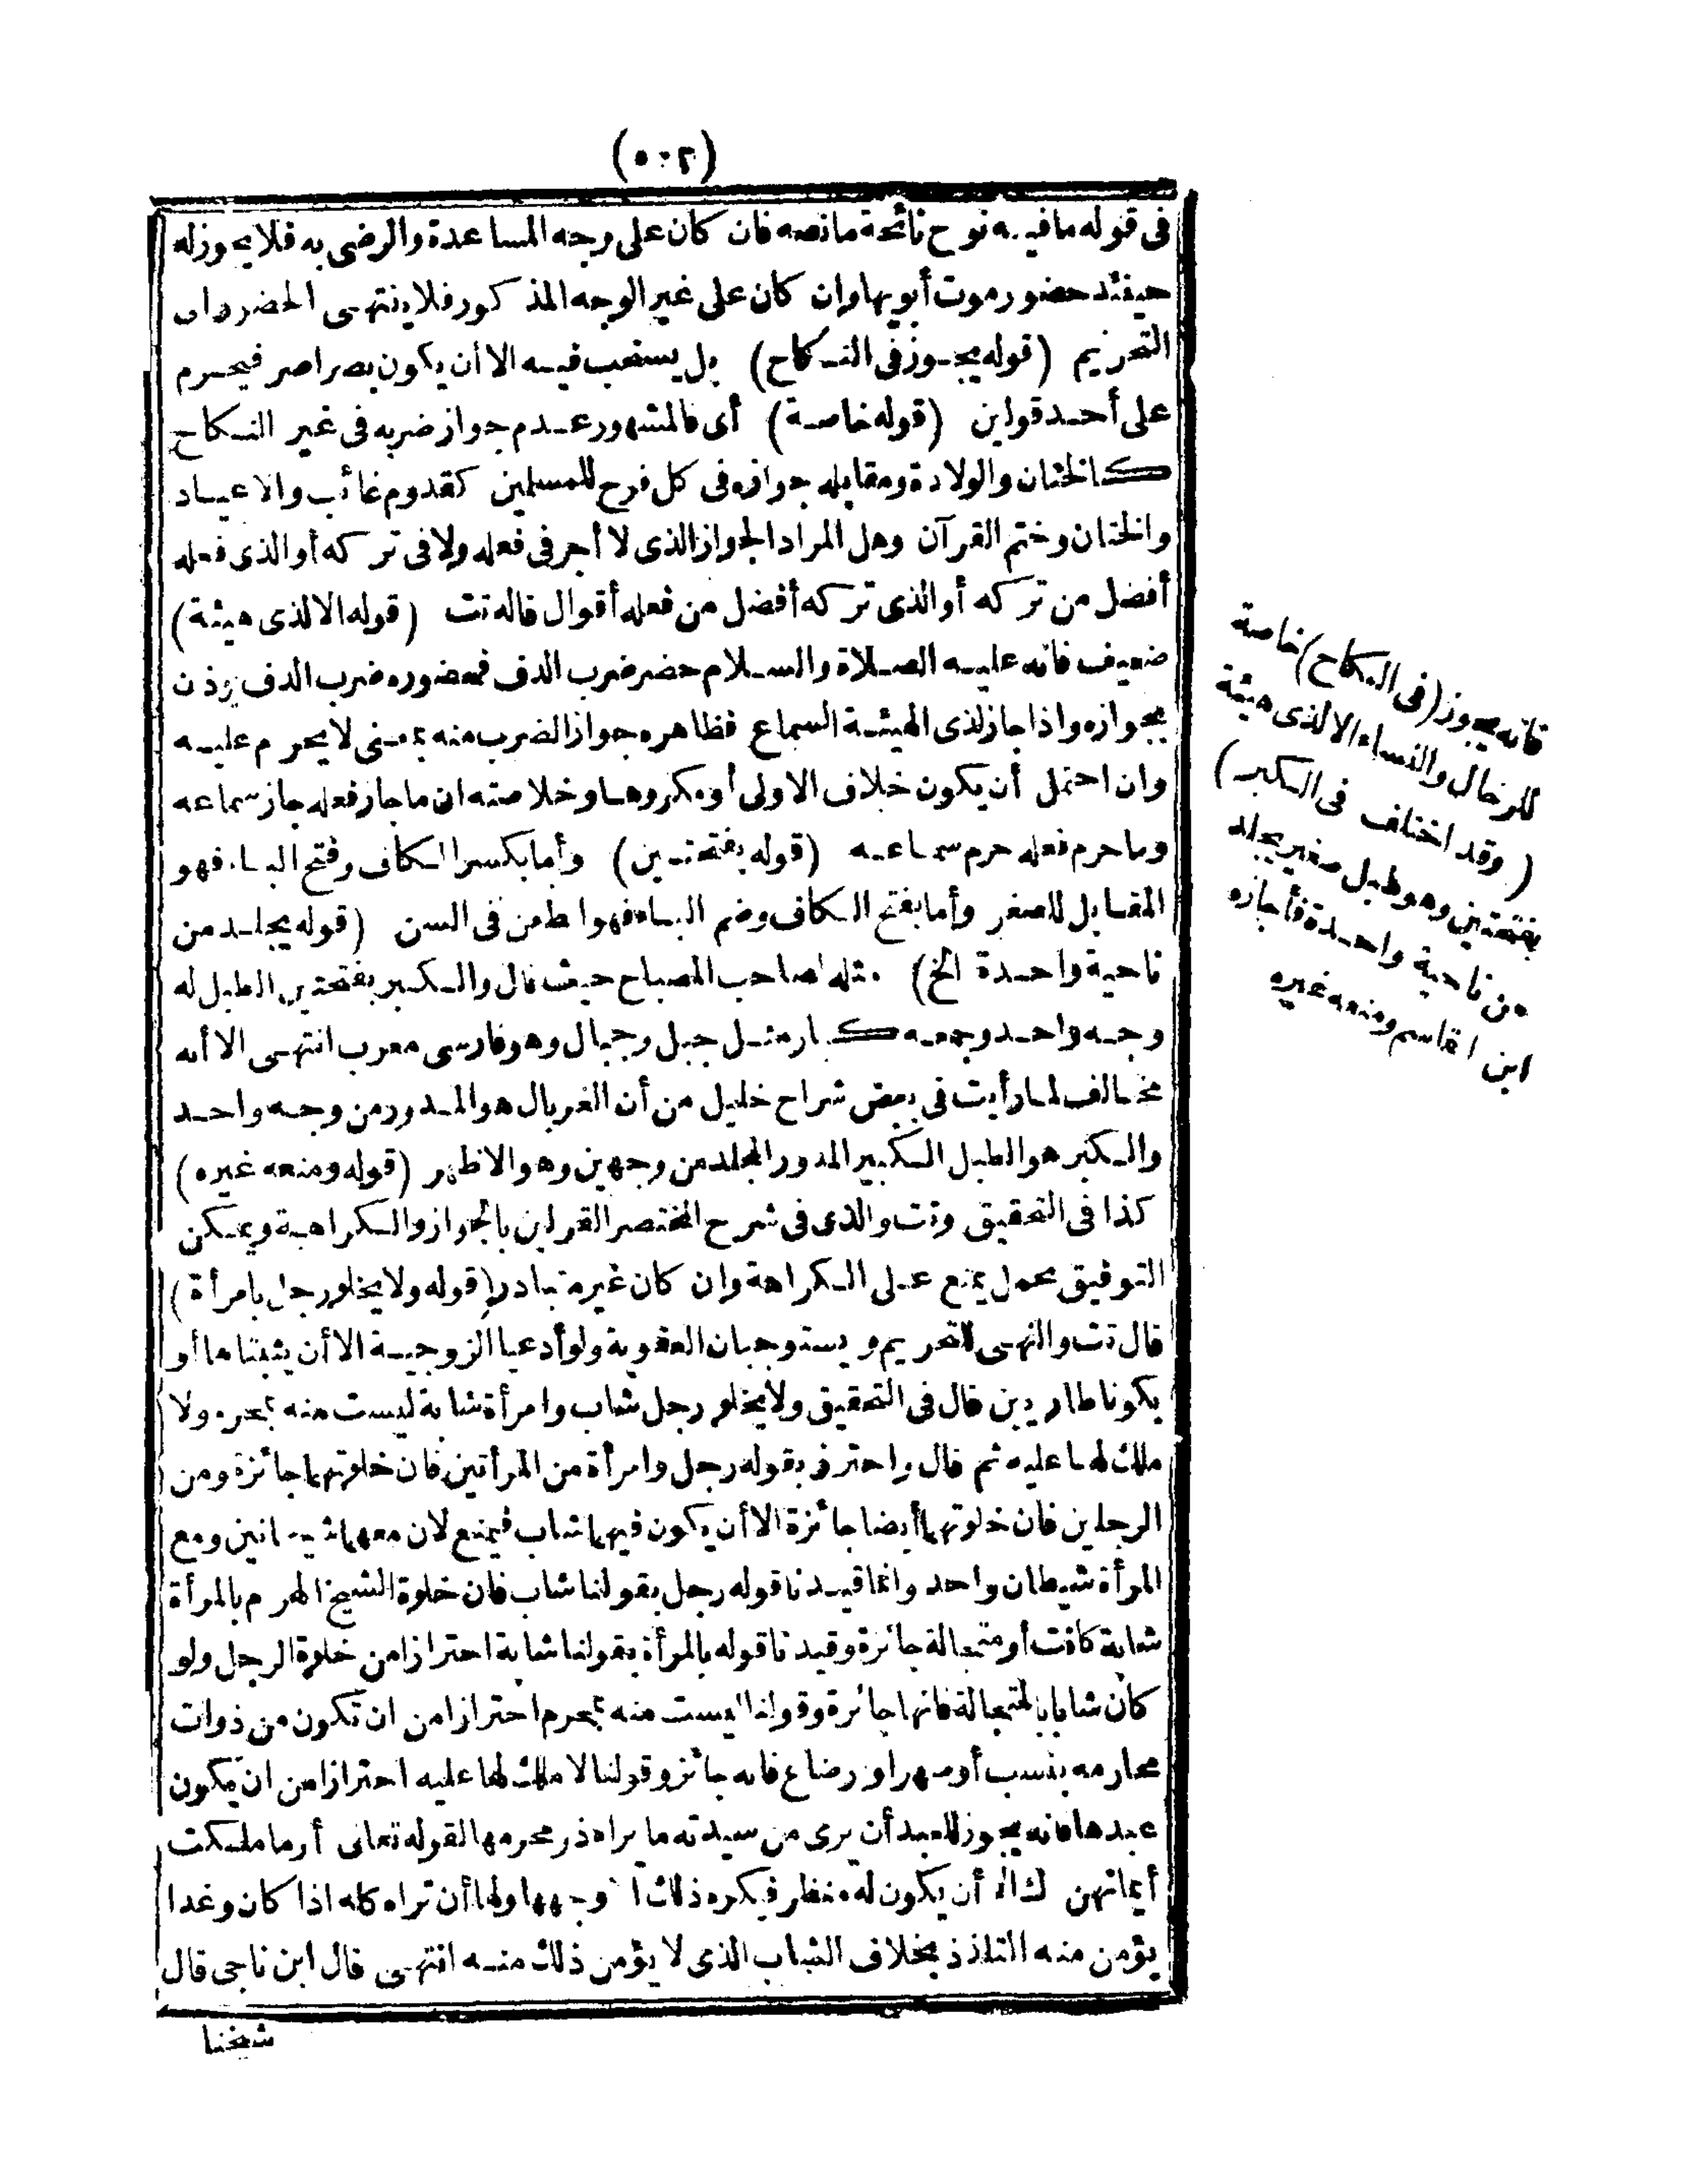 (٥٠٢)
فى قوله ما فيه نوح نائحة ما نصه فان كان على وجه المساعدة والرضى به فلا يجوز له
حينئذ حضور موت أبويها وان كان على غير الوجه المذكور فلا ينتهى الحضر
التحريم (قوله يجوز فى النكاح) بل يستحب فيه الا أن يكون بصراصر فيحرم
على أحد قولين (قوله خاصة) أى فالمشهور عدم جواز ضربه فى غير النكاح
كالختان والولادة ومقابله جوازه فى كل فرح للمسلمين كقدوم غائب والاعياد
والختان وختم القرآن وهل المراد الجواز الذى لا أجر فى فعله ولا فى تركه أو الذى فعله
أفضل من تركه أو الذى تركه أفضل من فعله أقوال قاله تت (قوله الا لذى هيئة)
ضعيف فانه عليه الصلاة والسلام حضر ضرب الدف فحضوره ضرب الدف يؤذن
بجوازه واذا جاز لذى الهيئة السماع فظاهره جواز الضرب منه بمعنى لا يحرم عليه
وان احتمل أن يكون خلاف الاولى أو مكروها وخلاصته ان ما جاز فعله جاز سماعه
وما حرم فعله حرم سماعه (قوله بفتحتين) وأما بكسر الكاف وفتح الباء فهو
المقابل للصغر وأما بفتح الكاف وضم الباء فهو الطعن فى السن (قوله يجلد من
ناحية واحدة الخ) مثله لصاحب المصباح حيث قال والكبر بفتحتين الطبل له
وجه واحد وجمعه كبار مثل جبل وجبال وهو فارسى معرب انتهى الا أنه
مخالف لما رأيت فى بعض شراح خليل من أن الغربال هو المدور من وجه واحد
والكبر هو الطبل الكبير المدور المجلد من وجهين وهو الاظهر (قوله ومنعه غيره)
كذا فى التحقيق وتت والذى فى شرح المختصر القولين بالجواز والكراهة ويمكن
التوفيق بحمل يمنع على الكراهة وان كان غير متبادر (قوله ولا يخلو رجل بامرأة)
قال تت والنهى للتحريم ويستوجبان العقوبة ولو أدعيا الزوجية الا أن يثبتاها أو
يكونا طاريين قال فى التحقيق ولا يخلو رجل شاب وامرأة شابة ليست منه بمحرم ولا
ملك لها عليه ثم قال واحترز بقوله رجل وامرأة من المرأتين فان خلوتهما جائزة ومن
الرجلين فان خلوتهما أيضا جائزة الا أن يكون فيهما شاب فيمنع لان معهما شيطانين ومع
المرأة شيطان واحد وانما قيدنا قوله رجل بقولنا شاب فان خلوة الشيخ الهرم بالمرأة
شابة كانت أو متجالة جائزة وقيدنا قوله بالمرأة بقولنا شابة احترازا من خلوة الرجل ولو
كان شابا بالمتجالة فانها جائزة وقولنا ليست منه بمحرم احترازا من ان تكون من ذوات
محارمه بنسب أو صهر أو رضاع فانه جائز وقولنا لا ملك لها عليه احترازا من ان يكون
عبدها فانه يجوز للعبد أن يرى من سيدته ما يراه ذو محرمها لقوله تعالى أو ما ملكت
أيمانهن أن يكون له منظر فيكره ذلك وجهها ولها أن تراه كله اذا كان وغدا
يؤمن منه التلذذ بخلاف الشباب الذى لا يؤمن ذلك منه انتهى قال ابن ناجى قال
شيخنا
فانه يجوز (فى النكاح) خاصة
للرجال والنساء الا لذى هيئة
(وقد اختلف فى الكبر)
بفتحتين وهو طبل صغير يجلد
من ناحية واحدة فأجازه
ابن القاسم ومنعه غيره